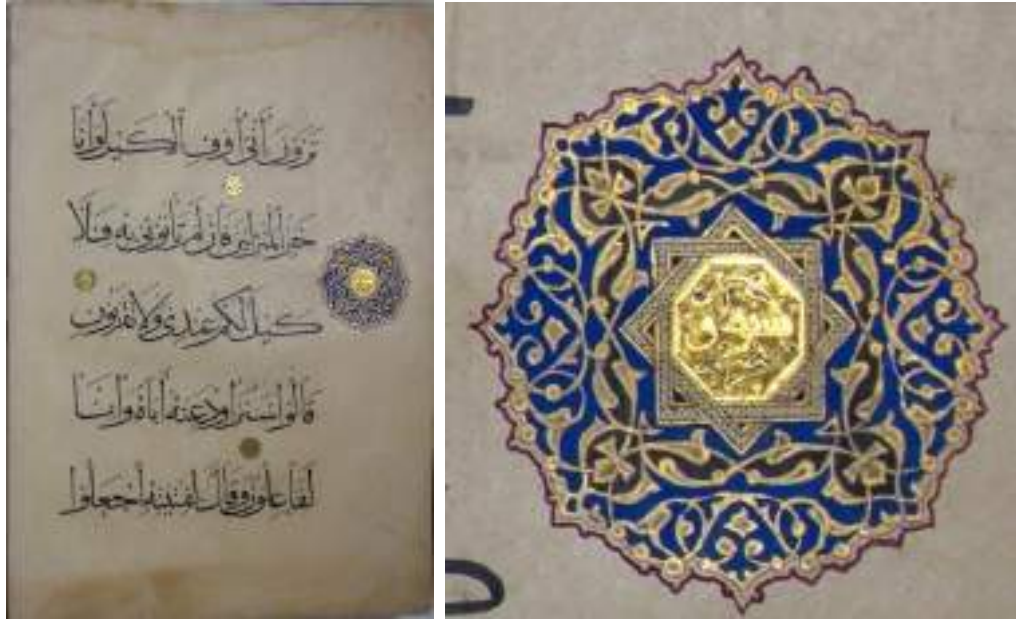 ترون أنى أوف الكيل وأنا
خير المنزلين فإن لم تأتوني به فلا
كيل لكم عندي ولا تقربون
قالوا سنراود عنه أباه وإنا
لفاعلون وقال لفتيته اجعلوا